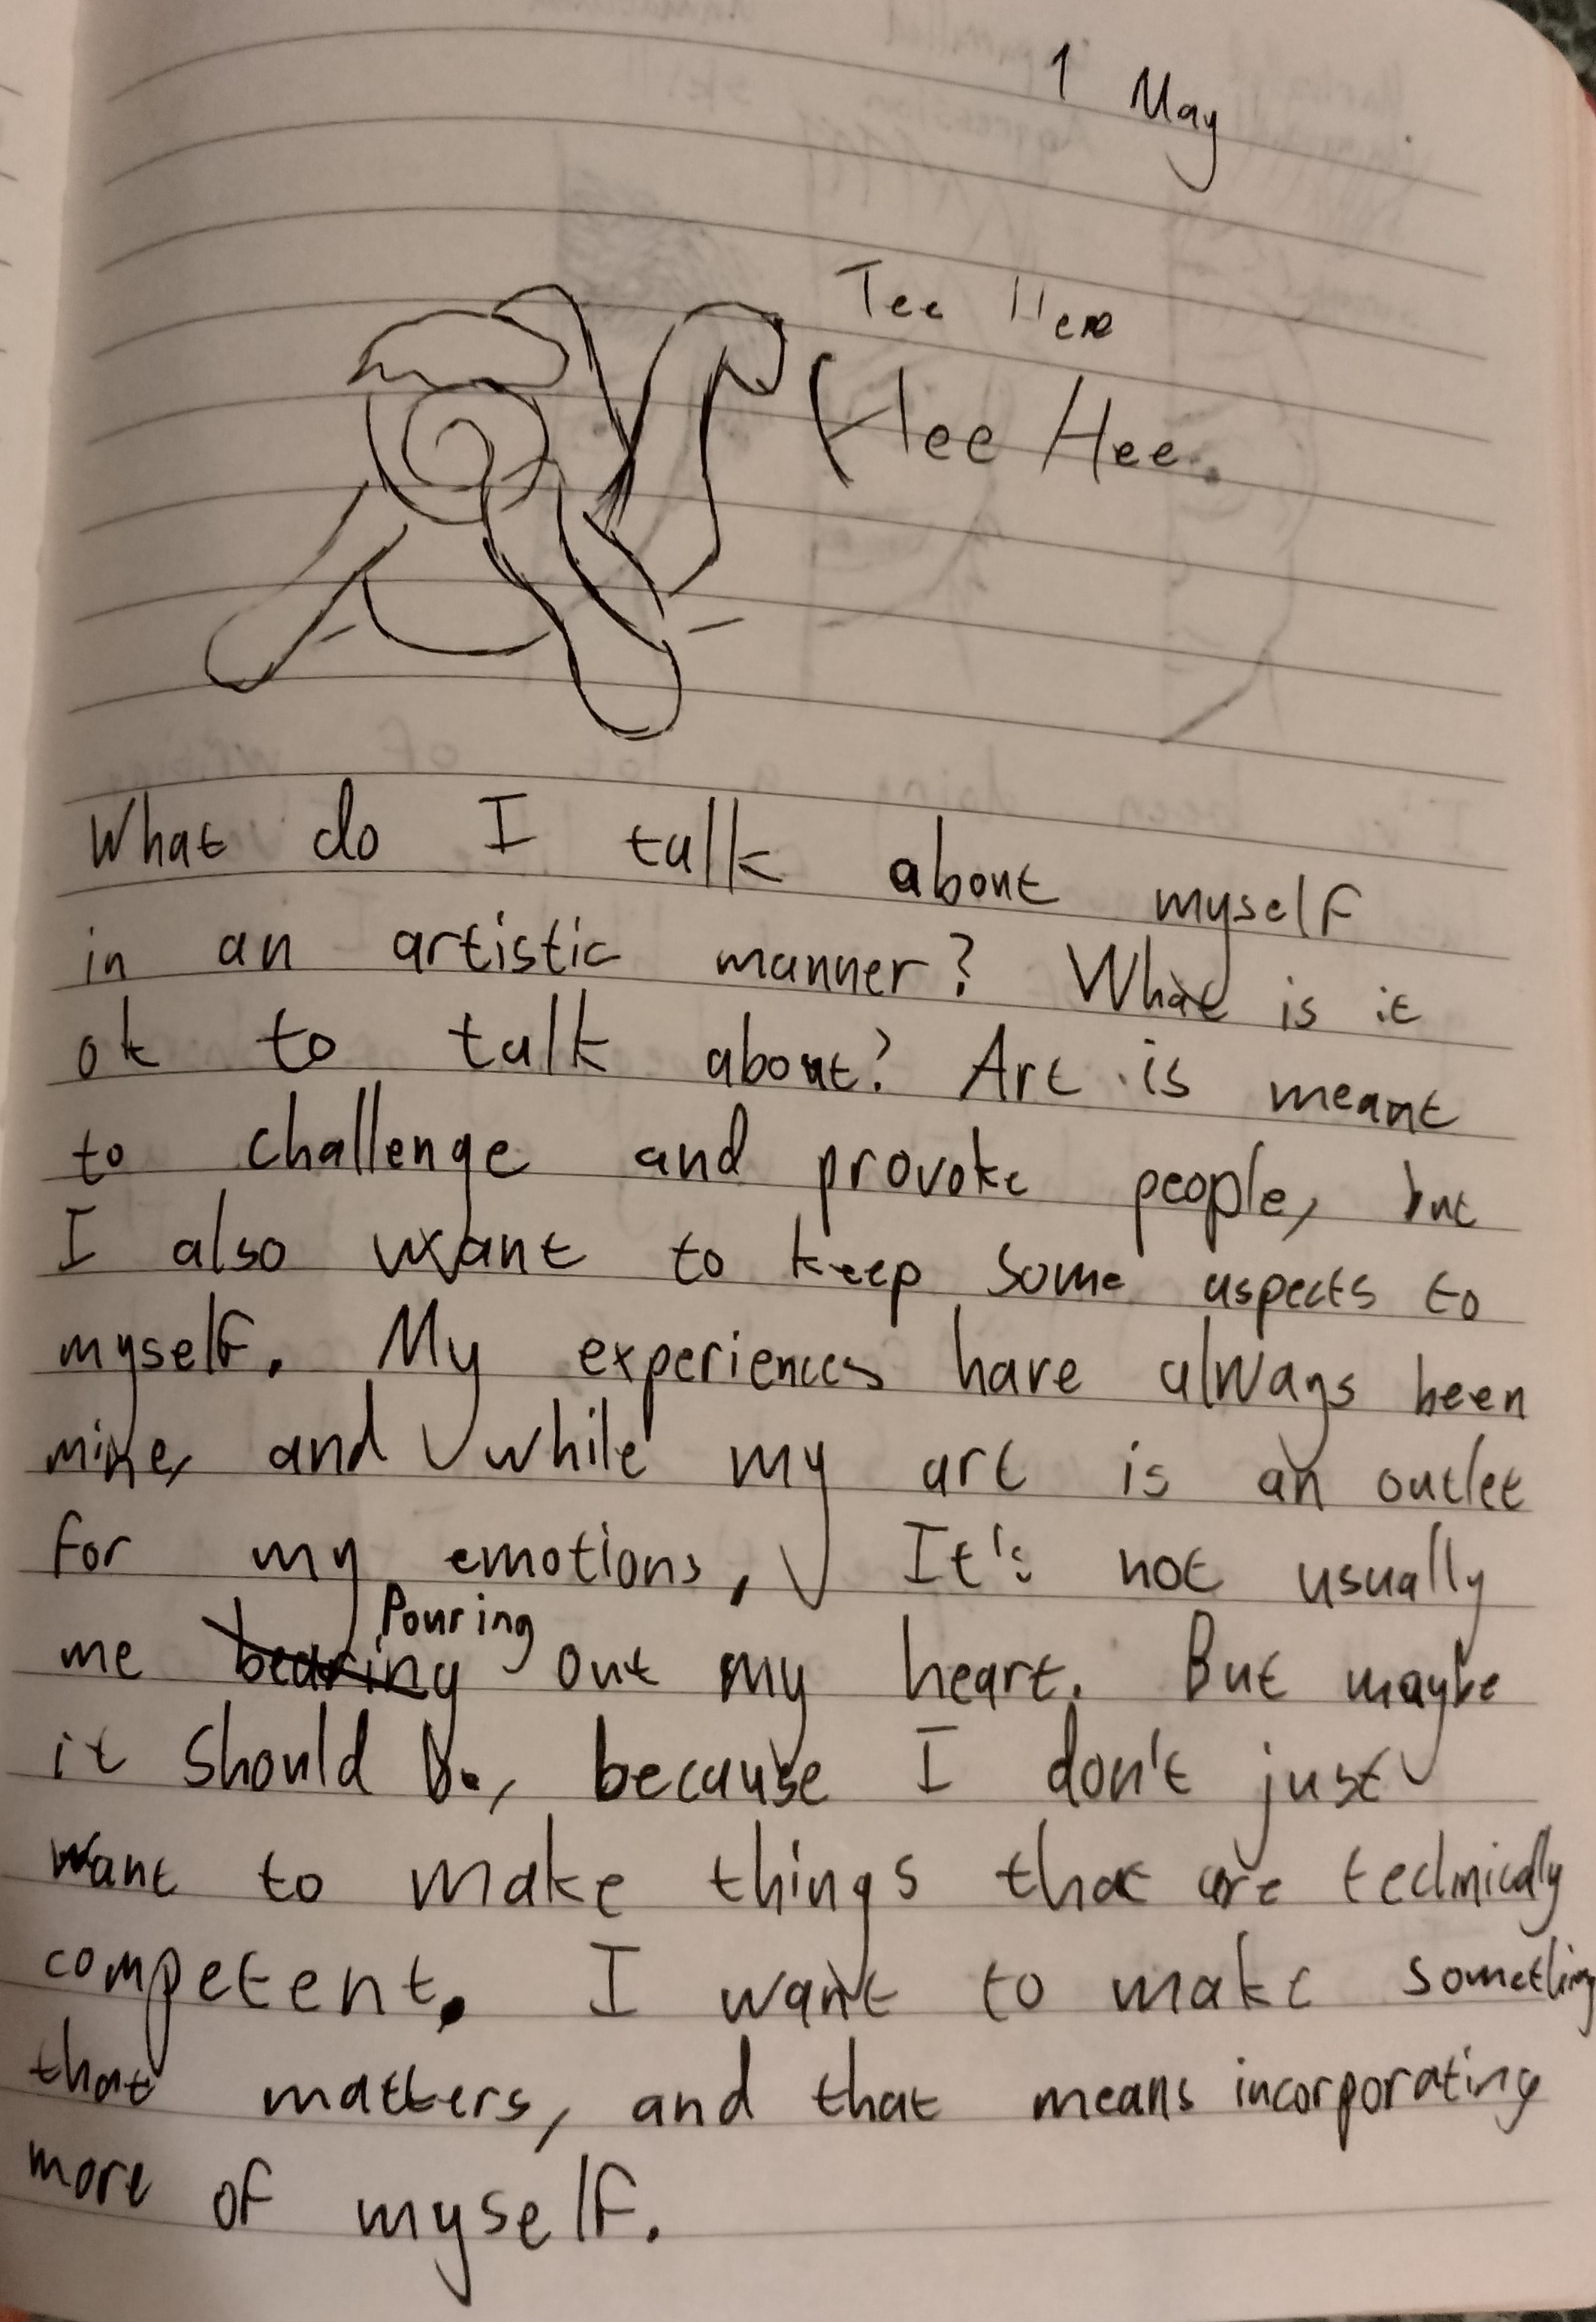 1 May
Tee Hee
Hee Hee.
What do I talk about myself
in an artistic manner? What is it
ok to talk about? Art is meant
to challenge and provoke people, but
I also want to keep some aspects to
myself. My experiences have always been
mine, and while my art is an outlet
for my emotions, It's not usually
me bearing Pouring out my heart. But maybe
it should be, because I don't just
want to make things that are technically
competent. I want to make something
that matters, and that means incorporating
more of myself.